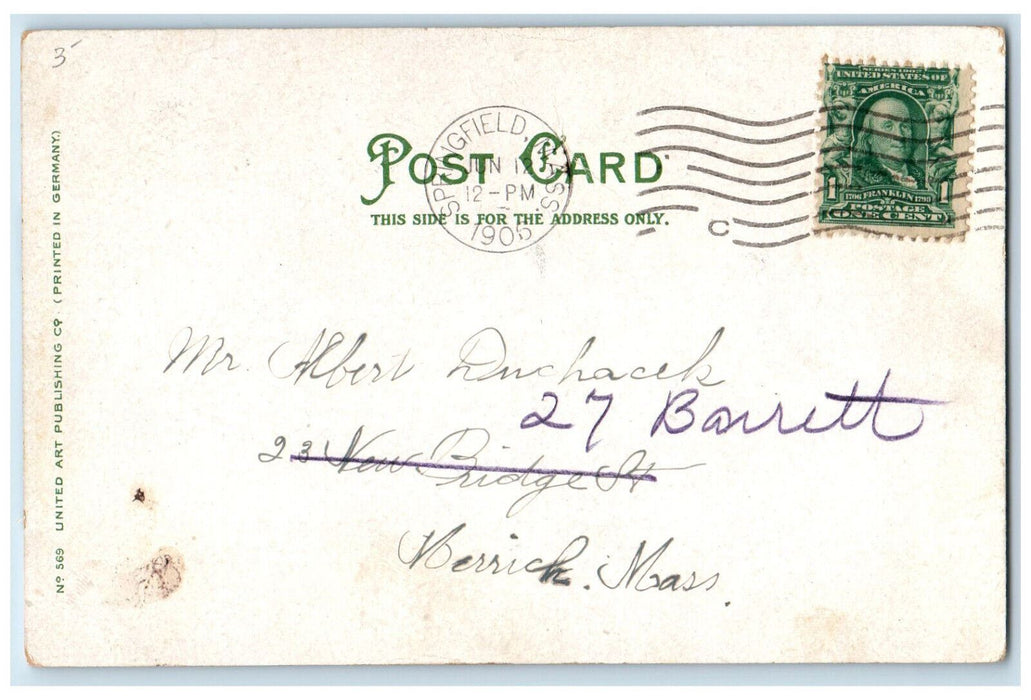 3
POST CARD
THIS SIDE IS FOR THE ADDRESS ONLY.
SPRINGFIELD, MASS.
JUN 12
12-PM
1905
C
SERIES 1902
UNITED STATES OF
AMERICA
1706 FRANKLIN 1790
POSTAGE
1 ONE CENT
Nº 569 UNITED ART PUBLISHING Cº. (PRINTED IN GERMANY.)
Mr. Albert Duchacek
27 Barrett
23 New Bridge St
Merrick. Mass.